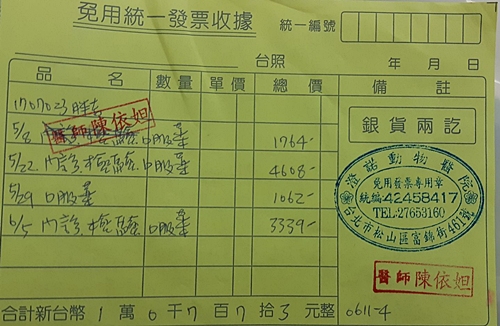 免用統一發票收據
統一編號
台照 年 月 日
品 名 數量 單價 總價 備註
1707023
5/8 內診、檢驗、口服藥 1764-
醫師陳依妲
5/22 內診、檢驗、口服藥 4608-
5/29 口服藥 1062-
6/5 內診、檢驗 口服藥 3339-
銀貨兩訖
澄諾動物醫院
免用發票專用章
統編42458417
TEL:27653160
台北市松山區富錦街461號
醫師陳依妲
合計新台幣 1 萬 0 千 7 百 7 拾 3 元整 0611-4